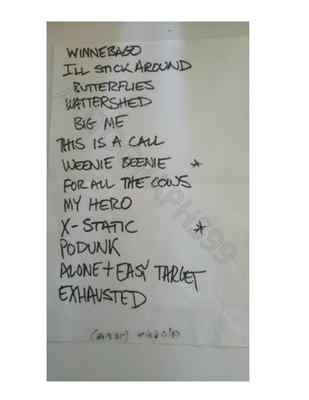 WINNEBAGO
I'LL STICK AROUND
BUTTERFLIES
WATTERSHED
BIG ME
THIS IS A CALL
WEENIE BEENIE *
FOR ALL THE COWS
MY HERO
X-STATIC *
PODUNK
ALONE + EASY TARGET
EXHAUSTED